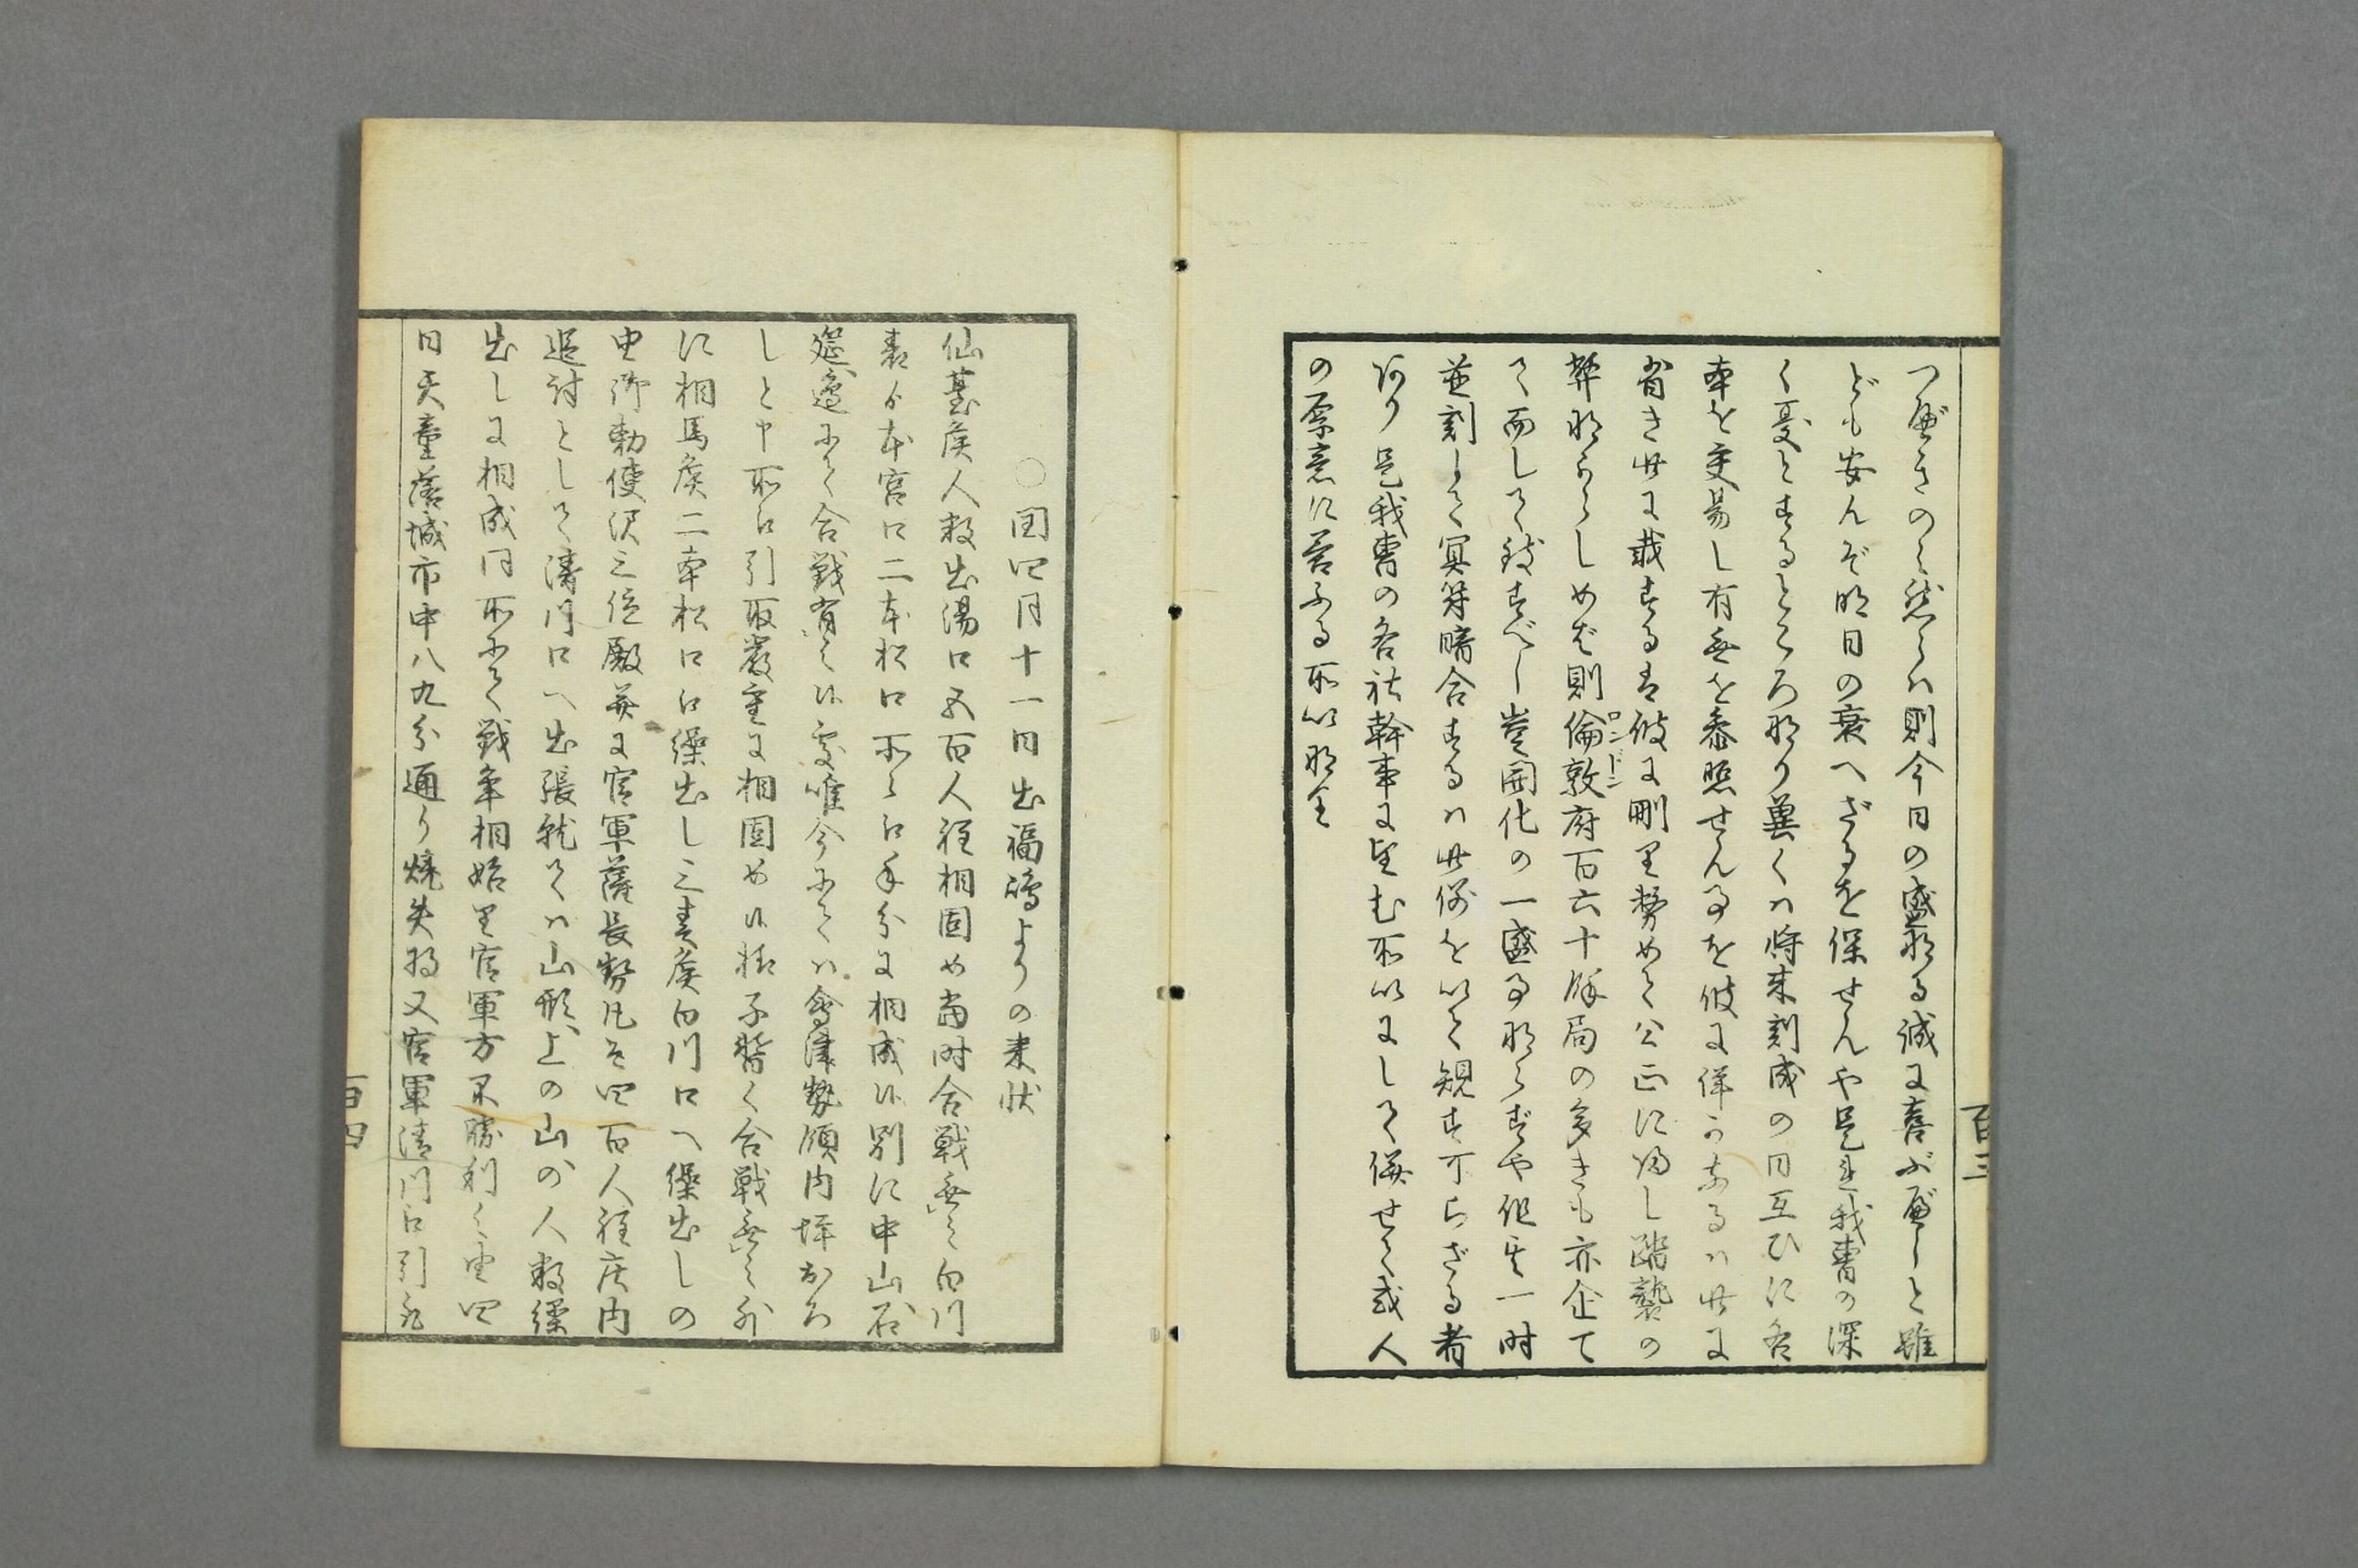 つ歴きのミ然らハ則今日の盛なる誠に喜ぶ歴しと雖
ども安んぞ明日の衰へざるを保せんや是是我曹の深
く憂とするところなり冀くハ将来刻成の日互ひに各
本を交易し有無を参照せん事を彼に詳かなるハ此に
省き此に載するは彼に刪り努めて公正に帰し踏襲の
弊なからしめば則倫敦府百六十餘局の多きも亦企て
ロンドン
て而して致すべし豈開化の一盛事ならずや但其一時
並刻して冥符暗合するハ此例を以て規す可らざる者
あり是我曹の各社幹事に望む所以にして併せて或人
の原意に答ふる所以なり
百三
○閏四月十一日出福嶋よりの来状
仙臺侯人数出湯口五百人程相固め当時合戦無之白川
表より本宮口二本松口所々江手分に相成候別に中山石
筵邊にて合戦有之候處唯今にてハ會津勢領内峠おろ
しと申所江引取厳重に相固め候様子暫く合戦無之外
に相馬侯二本松口江繰出し三春侯白川口へ繰出しの
由御勅使沢三位殿并に官軍薩長勢凡そ四百人程庄内
追討として清川口へ出張就てハ山形上の山の人数繰
出しに相成同所にて戦争相始り官軍方不勝利之由四
日天童落城市中八九分通り焼失将又官軍清川江引取
百四